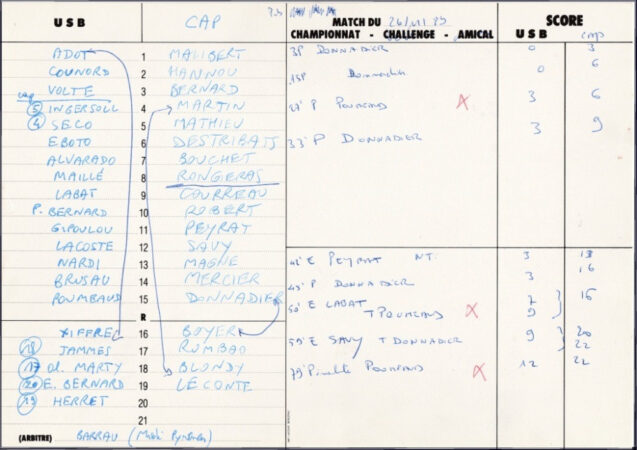 USB CAP MATCH DU 26/11/89 SCORE
CHAMPIONNAT - CHALLENGE - AMICAL USB CAP
ADOT 1 MALIBERT
COUNORD 2 HANNOU
VOLTE 3 BERNARD
cap
5 INGERSOLL 4 MARTIN
4 SECO 5 MATHIEU
EBOTO 6 DESTRIBATS
ALVARADO 7 BOUCHET
MAILLÉ 8 RONGIERAS
LABAT 9 COURREAU
P. BERNARD 10 ROBERT
GIPOULOU 11 PEYRAT
LACOSTE 12 SAVY
NARDI 13 MAGNE
BRUSAU 14 MERCIER
POUMBAUD 15 DONNADIER
R
XIFFREC 16 BOYER
18 JAMMES 17 ROMBAO
17 d. MARTY 18 BLONDY
20 E. BERNARD 19 LECONTE
19 HERRET 20
21
(ARBITRE) BARRAU (Midi Pyrénées)
3' P DONNADIER 0 3
15' P Donnadier 0 6
27' P 3 6
33' P DONNADIER 3 9
42' E PEYRAT NT. 3 13
45' P DONNADIER 3 16
50' E LABAT 7 16
T 9
59' E SAVY T DONNADIER 9 20
22
79' 12 22